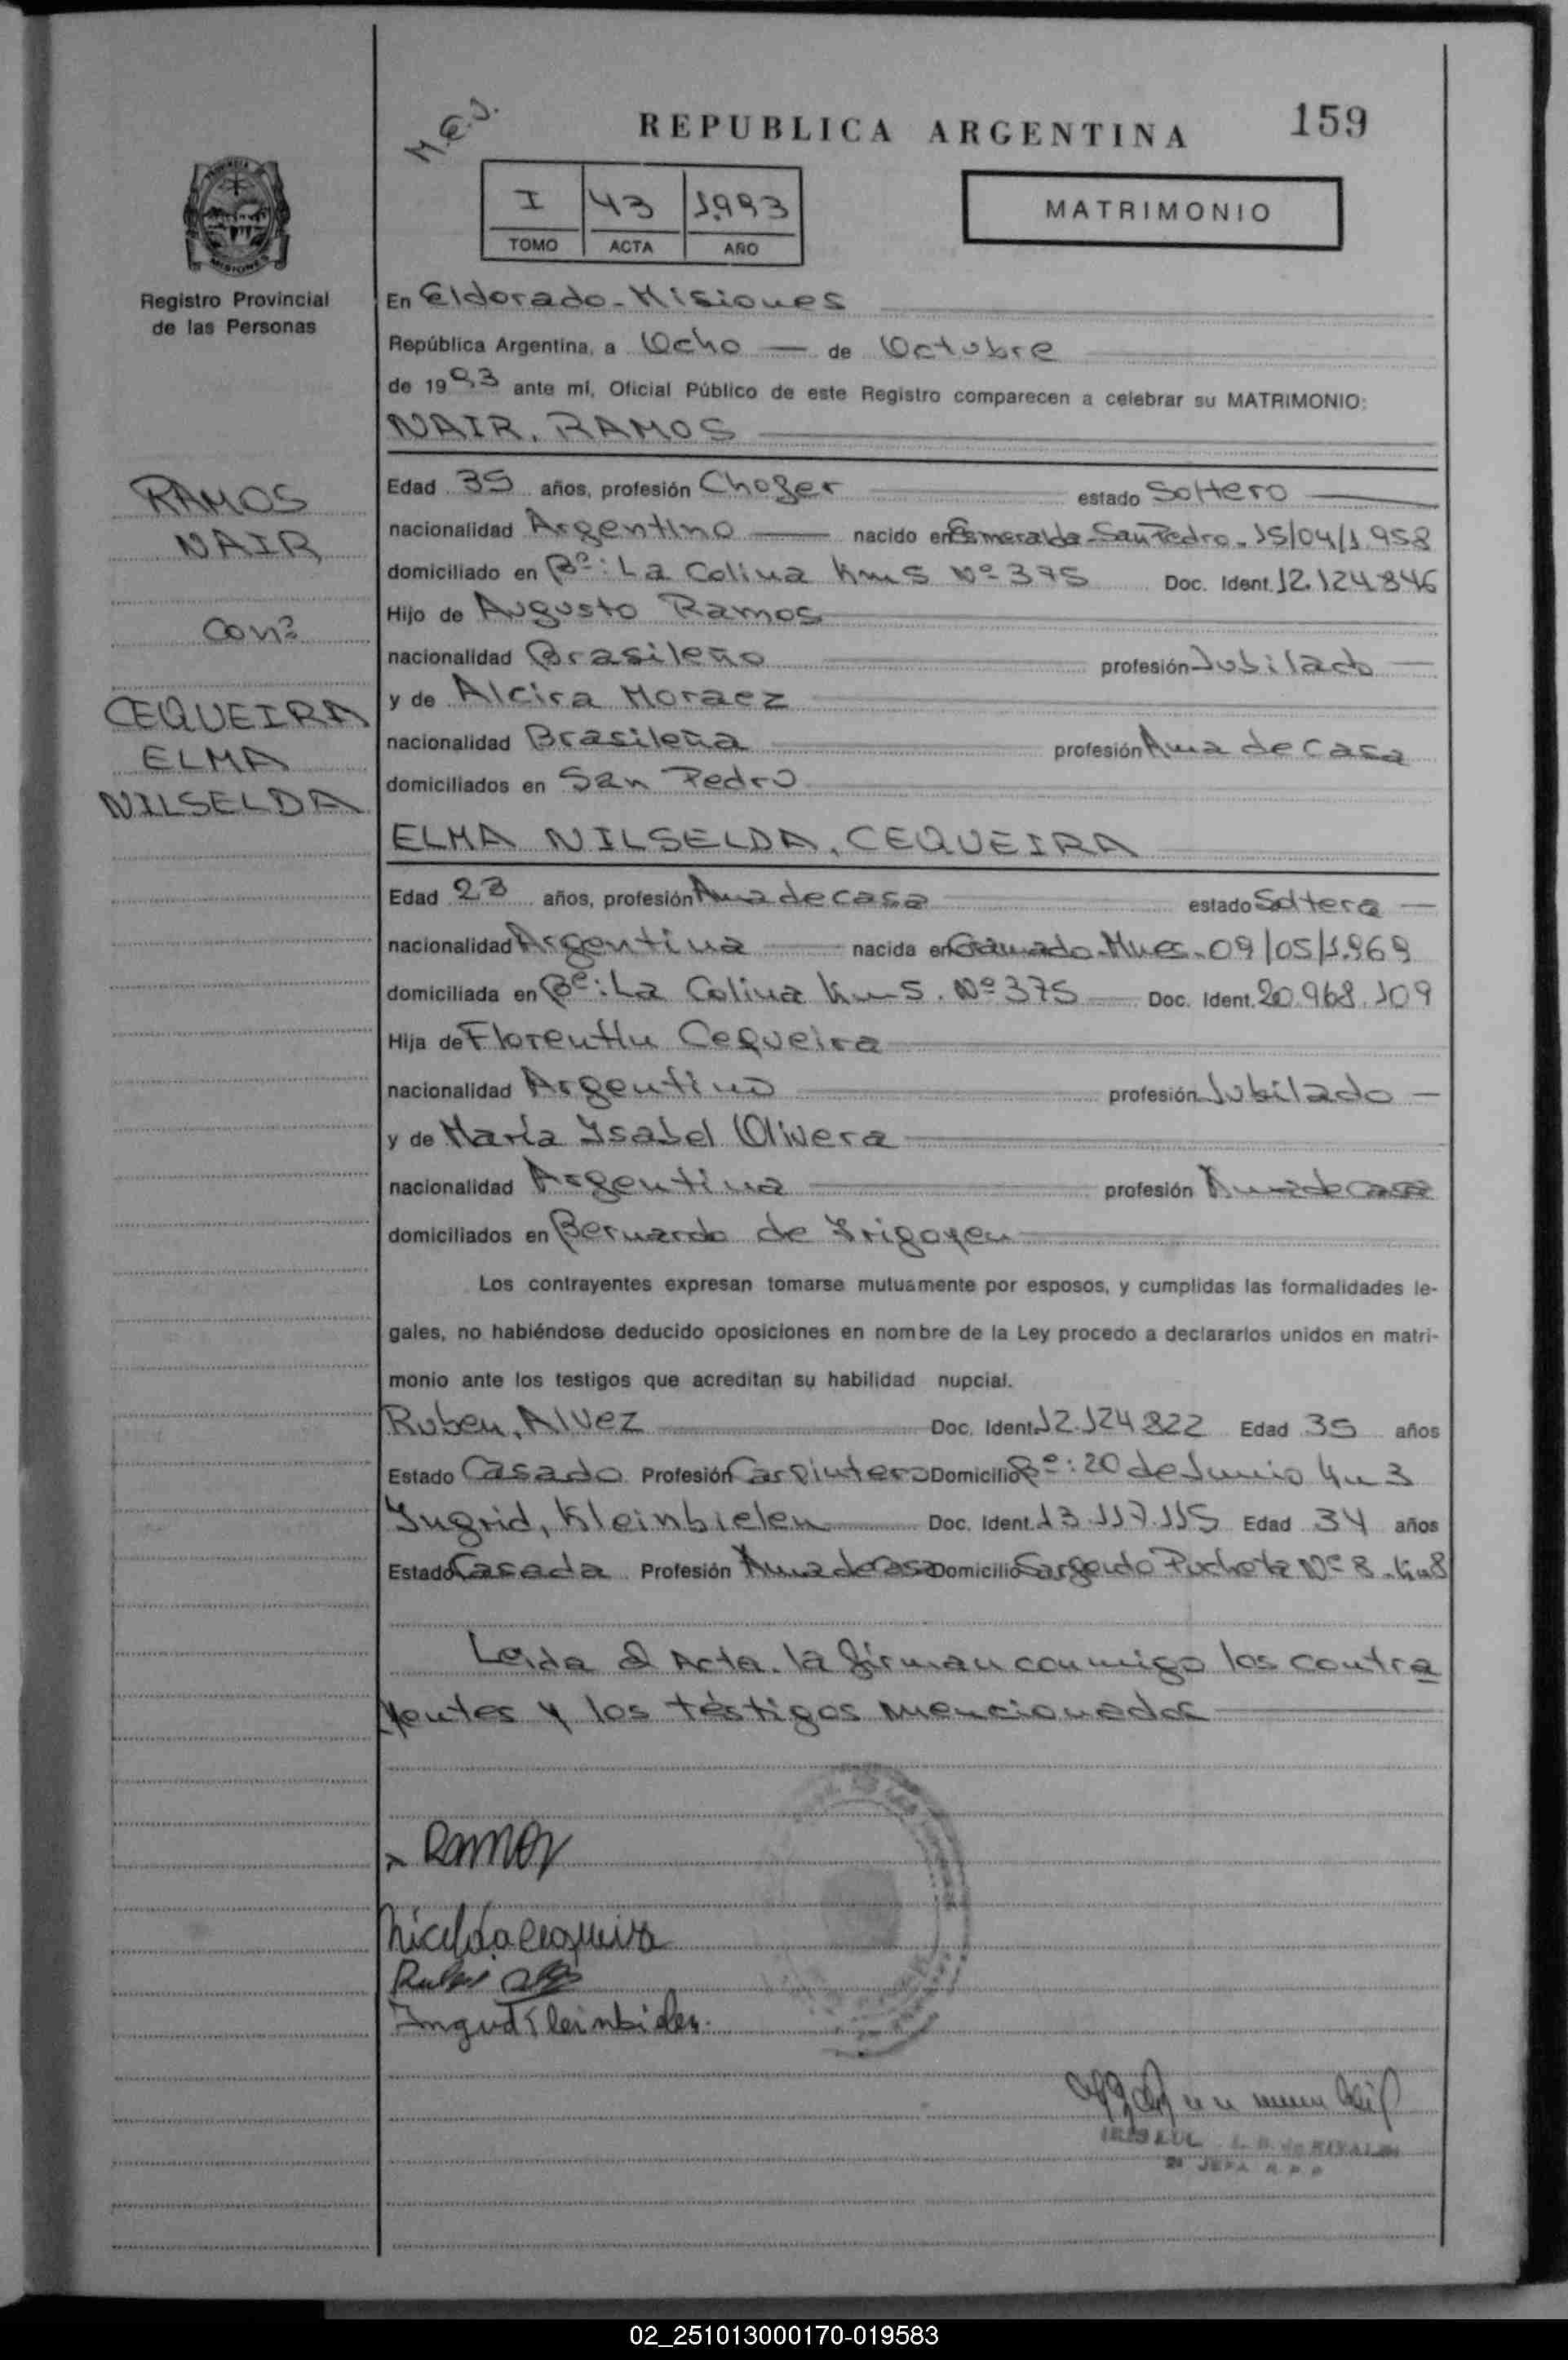 M.E.J.
REPUBLICA ARGENTINA
159
I 43 1.993
TOMO ACTA AÑO
MATRIMONIO
MISIONES
Registro Provincial
de las Personas
En Eldorado - Misiones
República Argentina, a Ocho de Octubre
de 1993 ante mí, Oficial Público de este Registro comparecen a celebrar su MATRIMONIO:
NAIR, RAMOS
RAMOS
NAIR
Con:
CEQUEIRA
ELMA
NILSELDA
Edad 35 años, profesión Chofer estado Soltero
nacionalidad Argentino nacido en Esmeralda - San Pedro - 15/04/1.958
domiciliado en Bº: La Colina Km 5 Nº 375 Doc. Ident. 12.124.846
Hijo de Augusto Ramos
nacionalidad Brasileño profesión Jubilado
y de Alcira Moraez
nacionalidad Brasileña profesión Ama de casa
domiciliados en San Pedro
ELMA NILSELDA, CEQUEIRA
Edad 23 años, profesión Ama de casa estado Soltera
nacionalidad Argentina nacida en Gramado - Mnes - 09/05/1.969
domiciliada en Bº: La Colina Km 5. Nº 375 Doc. Ident. 20.968.109
Hija de Florentin Cequeira
nacionalidad Argentino profesión Jubilado
y de María Ysabel Olivera
nacionalidad Argentina profesión Ama de casa
domiciliados en Bernardo de Yrigoyen
Los contrayentes expresan tomarse mutuamente por esposos, y cumplidas las formalidades le-
gales, no habiéndose deducido oposiciones en nombre de la Ley procedo a declararlos unidos en matri-
monio ante los testigos que acreditan su habilidad nupcial.
Ruben, Alvez Doc. Ident. 12.124.822 Edad 35 años
Estado Casado Profesión Carpintero Domicilio Bº: 20 de Junio Km 3
Yngrid, Kleinbielen Doc. Ident. 13.117.115 Edad 34 años
Estado Casada Profesión Ama de Casa Domicilio Sargento Nº 8 - Km 8
Leida el Acta, la firman conmigo los contra
yentes y los testigos mencionados
x Ramos
Nicelda Cequeira
Ruben
Ingrid Kleinbielen.
JEFA R.P.P
02_251013000170-019583